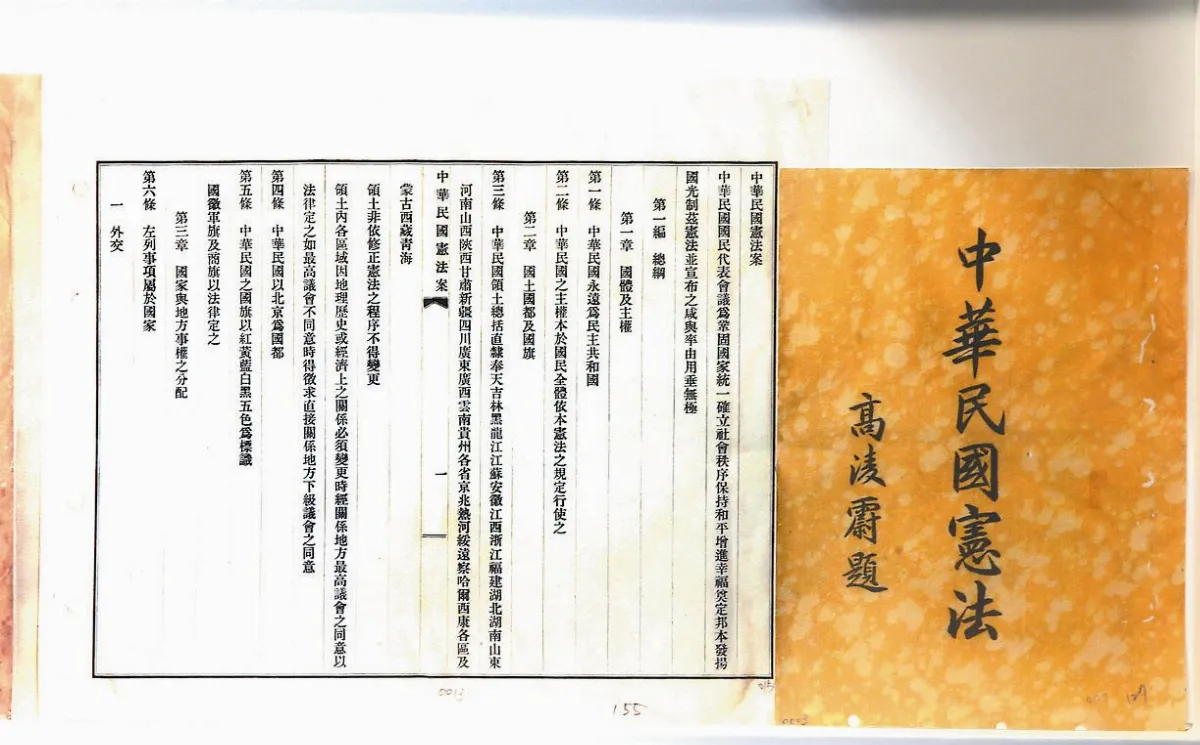 中華民國憲法
高凌霨題
中華民國憲法案
中華民國國民代表會議爲鞏固國家統一確立社會秩序保持和平增進幸福奠定邦本發揚
國光制茲憲法並宣布之咸與率由用垂無極
第一編　總綱
第一章　國體及主權
第一條　中華民國永遠爲民主共和國
第二條　中華民國之主權本於國民全體依本憲法之規定行使之
第二章　國土國都及國旗
第三條　中華民國領土總括直隸奉天吉林黑龍江江蘇安徽江西浙江福建湖北湖南山東
河南山西陝西甘肅新疆四川廣東廣西雲南貴州各省京兆熱河綏遠察哈爾西康各區及
中華民國憲法案
一
蒙古西藏青海
領土非依修正憲法之程序不得變更
領土內各區域因地理歷史或經濟上之關係必須變更時經關係地方最高議會之同意以
法律定之如最高議會不同意時得徵求直接關係地方下級議會之同意
第四條　中華民國以北京爲國都
第五條　中華民國之國旗以紅黃藍白黑五色爲標識
國徽軍旗及商旗以法律定之
第三章　國家與地方事權之分配
第六條　左列事項屬於國家
一　外交
0013
155